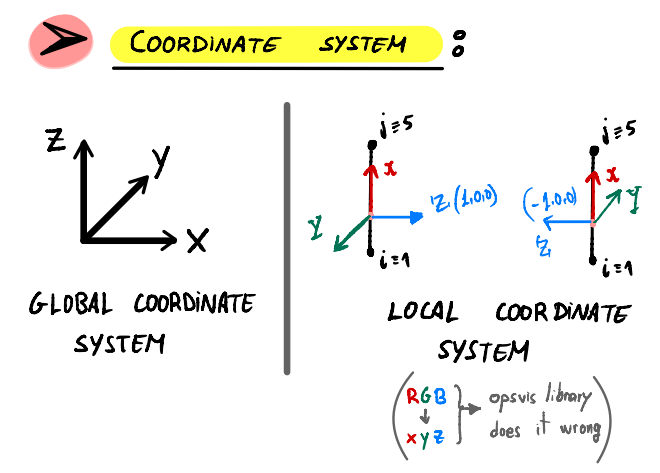 ➤ COORDINATE SYSTEM :
Z
Y
X
GLOBAL COORDINATE
SYSTEM
j≡5
x
Z (1,0,0)
Y
i≡1
j≡5
x
Y
(-1,0,0)
Z
i≡1
LOCAL COORDINATE
SYSTEM
RGB
↓
x y z
→ opsvis library
does it wrong